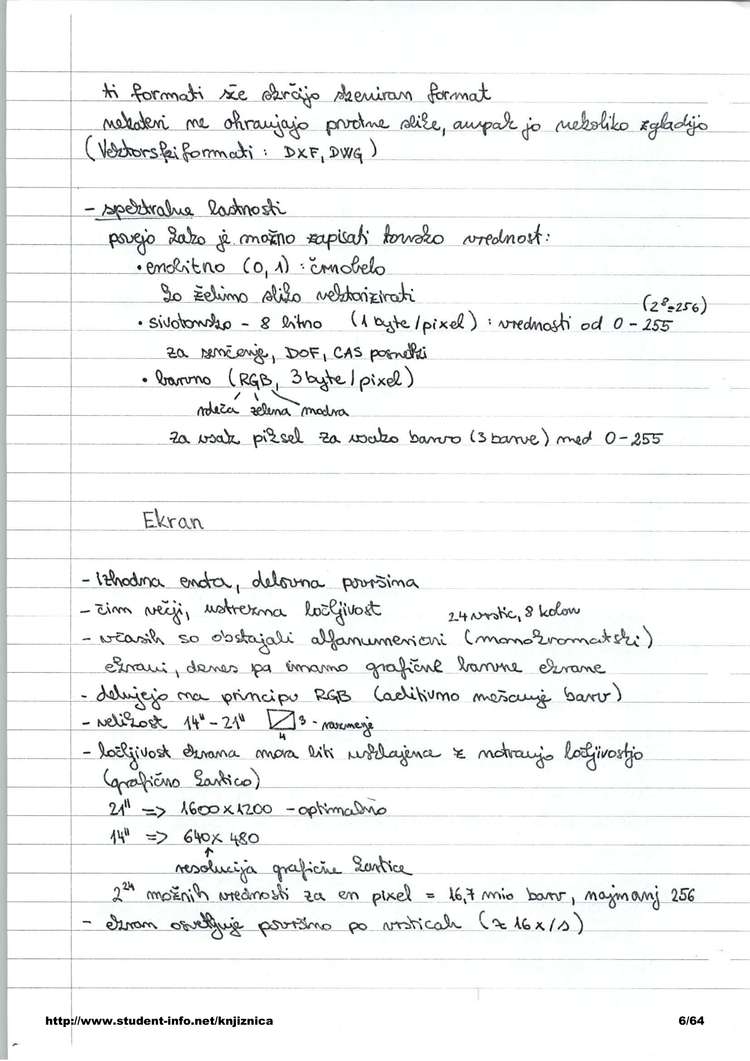 ti formati že skrčijo skeniran format
nekateri ne ohranjajo prvotne slike, ampak jo nekoliko zgladijo
(Vektorski formati : DXF, DWG)
- spektralne lastnosti
povejo kako je možno zapisati tonsko vrednost:
• enobitno (0, 1) : črnobelo
ko želimo sliko vektorizirati
(2⁸=256)
• sivotonsko - 8 bitno (1 byte/pixel) : vrednosti od 0 - 255
za senčenje, DOF, CAS posnetki
• barvno (RGB, 3 byte/pixel)
rdeča zelena modra
za vsak piksel za vsako barvo (3 barve) med 0-255
Ekran
- izhodna enota, delovna površina
- čim večji, ustrezna ločljivost
24 vrstic, 8 kolon
- včasih so obstajali alfanumerični (monokromatski)
ekrani, danes pa imamo grafične barvne ekrane
- delujejo na principu RGB (aditivno mešanje barv)
- velikost 14" - 21" 3 - razmerje
4
- ločljivost ekrana mora biti usklajena z notranjo ločljivostjo
(grafično kartico)
21" => 1600x1200 - optimalno
14" => 640x480
resolucija grafične kartice
2²⁴ možnih vrednosti za en pixel = 16,7 mio barv, najmanj 256
- ekran osvetljuje površino po vrsticah (z 16x/s)
http://www.student-info.net/knjiznica
6/64